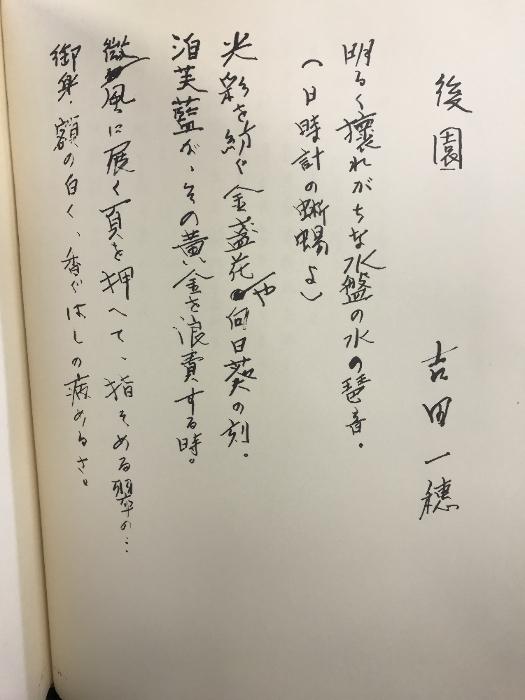 後園
吉田一穂
明るく壊れがちな水盤の水の琶音・
(日時計の蜥蜴よ)
光彩を紡ぐ金盞花や向日葵の刻・
洎芙藍が、その黄金を浪費する時。
微風に展く頁を押へて、指そめる翠の…
御身・額の白く、香ぐはしの病めるさ。